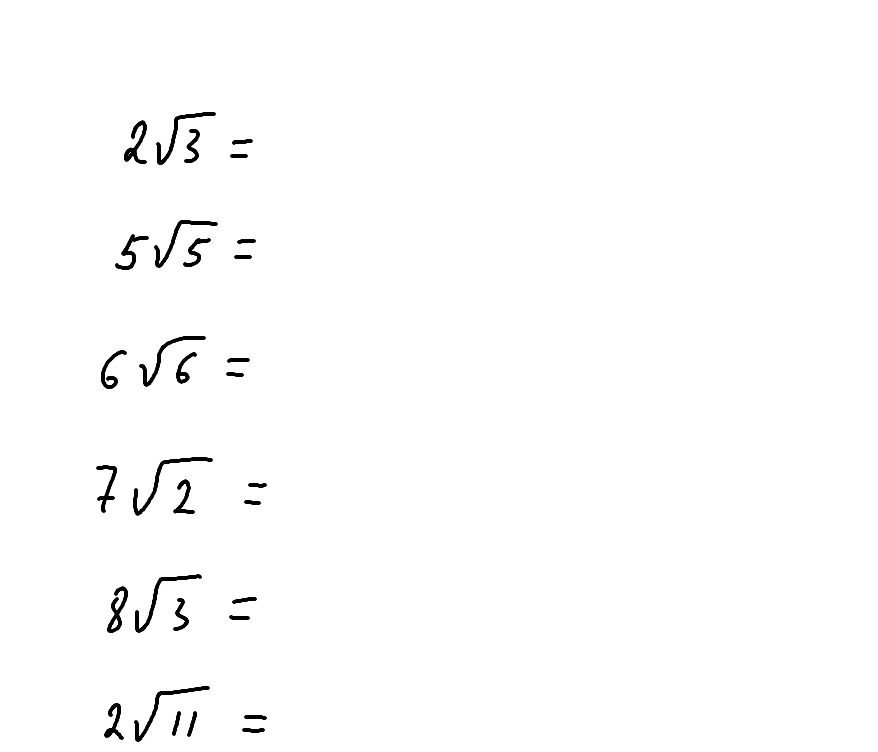 2√3 =
5√5 =
6√6 =
7√2 =
8√3 =
2√11 =